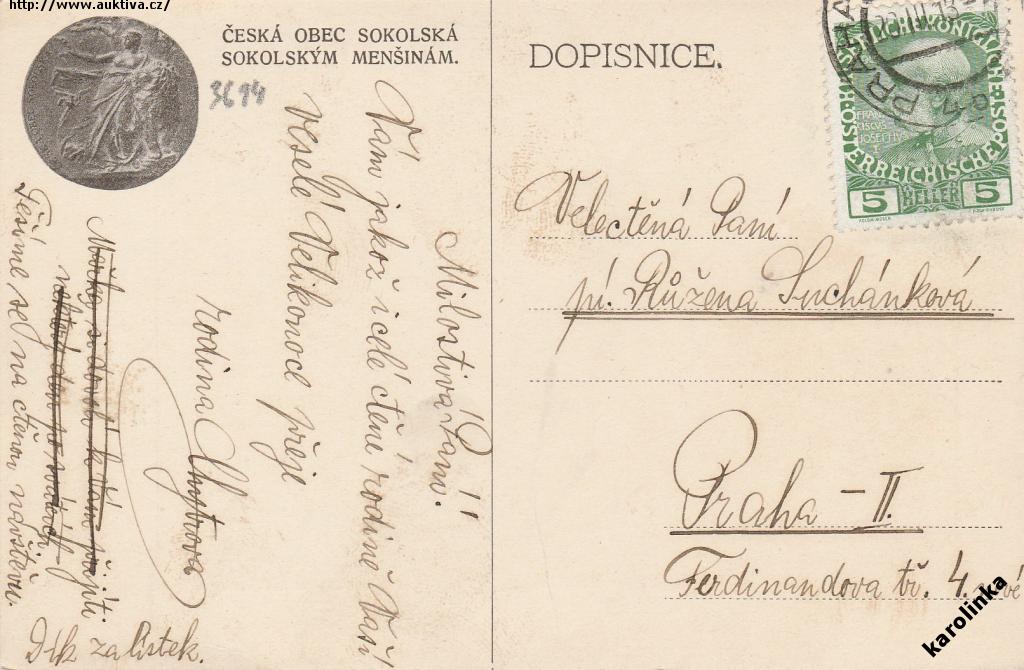 http://www.auktiva.cz/
ČESKÁ OBEC SOKOLSKÁ
SOKOLSKÝM MENŠINÁM.
3614
DOPISNICE.
PRAHA
ÖSTERREICHISCHE POST
5 HELLER 5
Velectěná Paní
pí. Růžena Suchánková
Praha – II.
Ferdinandova tř. 4.
Milostivá Paní!
Vám jakož i celé ctěné rodině Vaší
veselé Velikonoce přeje
rodina
Těšíme se na ctěnou návštěvu.
Dík za lístek.
karolinka